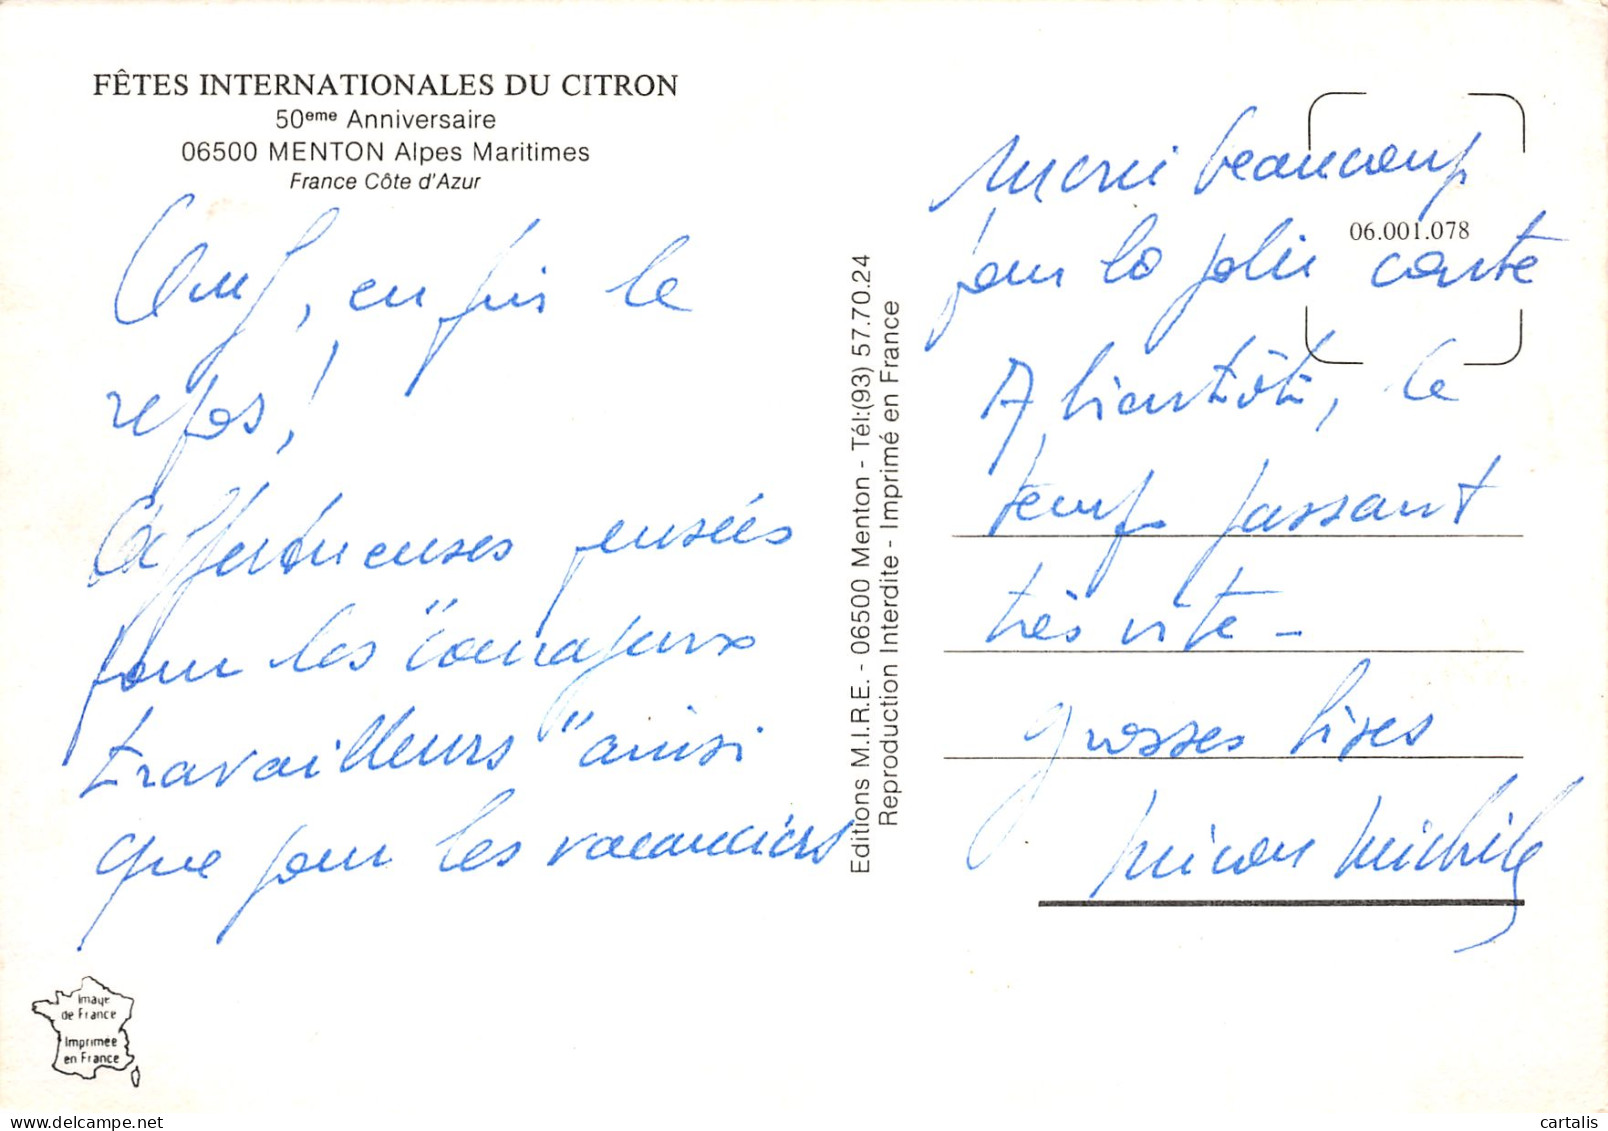 FÊTES INTERNATIONALES DU CITRON
50eme Anniversaire
06500 MENTON Alpes Maritimes
France Côte d'Azur
Ouf, enfin le
repos!
Affectueuses pensées
pour les "courageux
travailleurs" ainsi
que pour les vacanciers
Editions M.I.R.E. - 06500 Menton - Tél:(93) 57.70.24
Reproduction Interdite - Imprimé en France
Merci beaucoup
06.001.078
pour la jolie carte
A bientôt, le
temps passant
très vite -
grosses bises
Michèle
Image
de France
Imprimée
en France
cartalis
www.delcampe.net